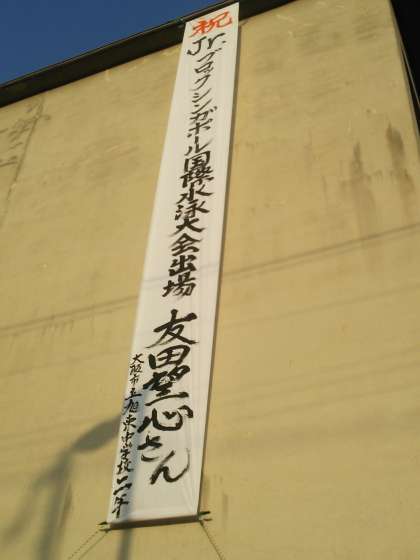 祝
Jr.ブロックシンガポール国際水泳大会出場
友田望心さん
大阪市立旭東中学校一年